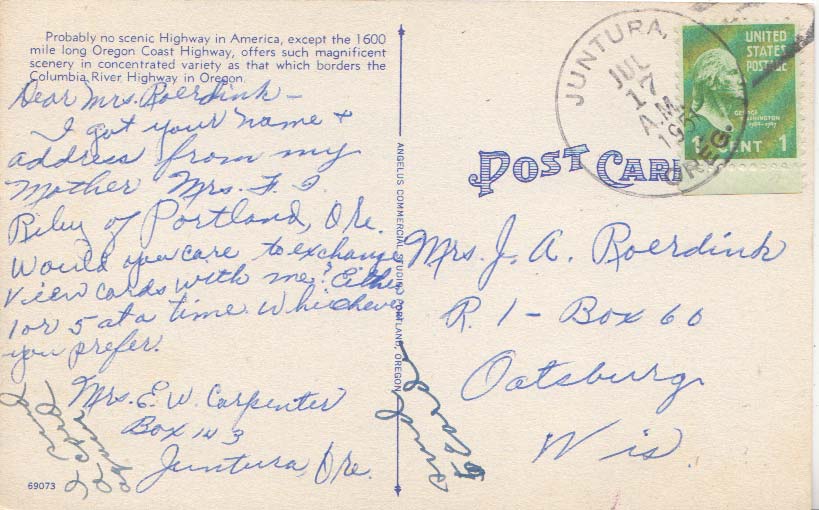 Probably no scenic Highway in America, except the 1600
mile long Oregon Coast Highway, offers such magnificent
scenery in concentrated variety as that which borders the
Columbia River Highway in Oregon.
Dear Mrs. Roerdink –
I got your name +
address from my
Mother Mrs. F. I.
Riley of Portland, Ore.
Would you care to exchange
View cards with me? Either
1 or 5 at a time. Whichever
you prefer.
Mrs. E. W. Carpenter
Box 143
Juntura, Ore.
69073
ANGELUS COMMERCIAL STUDIO, PORTLAND, OREGON
POST CARD
JUNTURA,
JUL
17
A.M.
OREG.
UNITED
STATES
POSTAGE
GEORGE
WASHINGTON
1789-1797
1 CENT 1
Mrs. J. A. Roerdink
R. 1 – Box 60
Oatsburg
Wis.